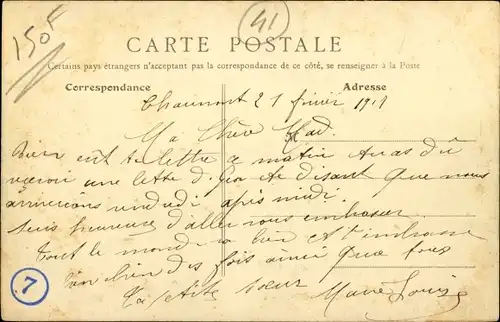 150F
41
CARTE POSTALE
Certains pays étrangers n'acceptant pas la correspondance de ce côté, se renseigner à la Poste
Correspondance
Adresse
Chaumont 21 février 1911
Ma Chère Mad.
Bien eut ta lettre ce matin tu as dû
recevoir une lettre d. te disant que nous
arriverions vendredi après midi.
suis heureuse d'aller vous embrasser.
Tout le monde va bien et t'embrasse
bien des fois ainsi que
Ta sœur Marie Louise
7